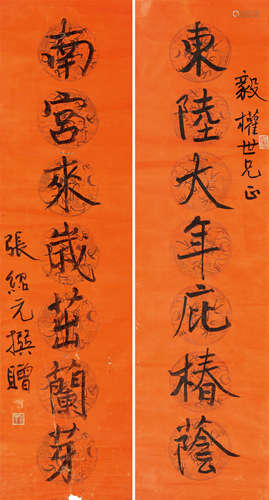 毅權世兄正
東陸大年庇椿蔭
南宮來歲茁蘭芽
張紹元撰贈